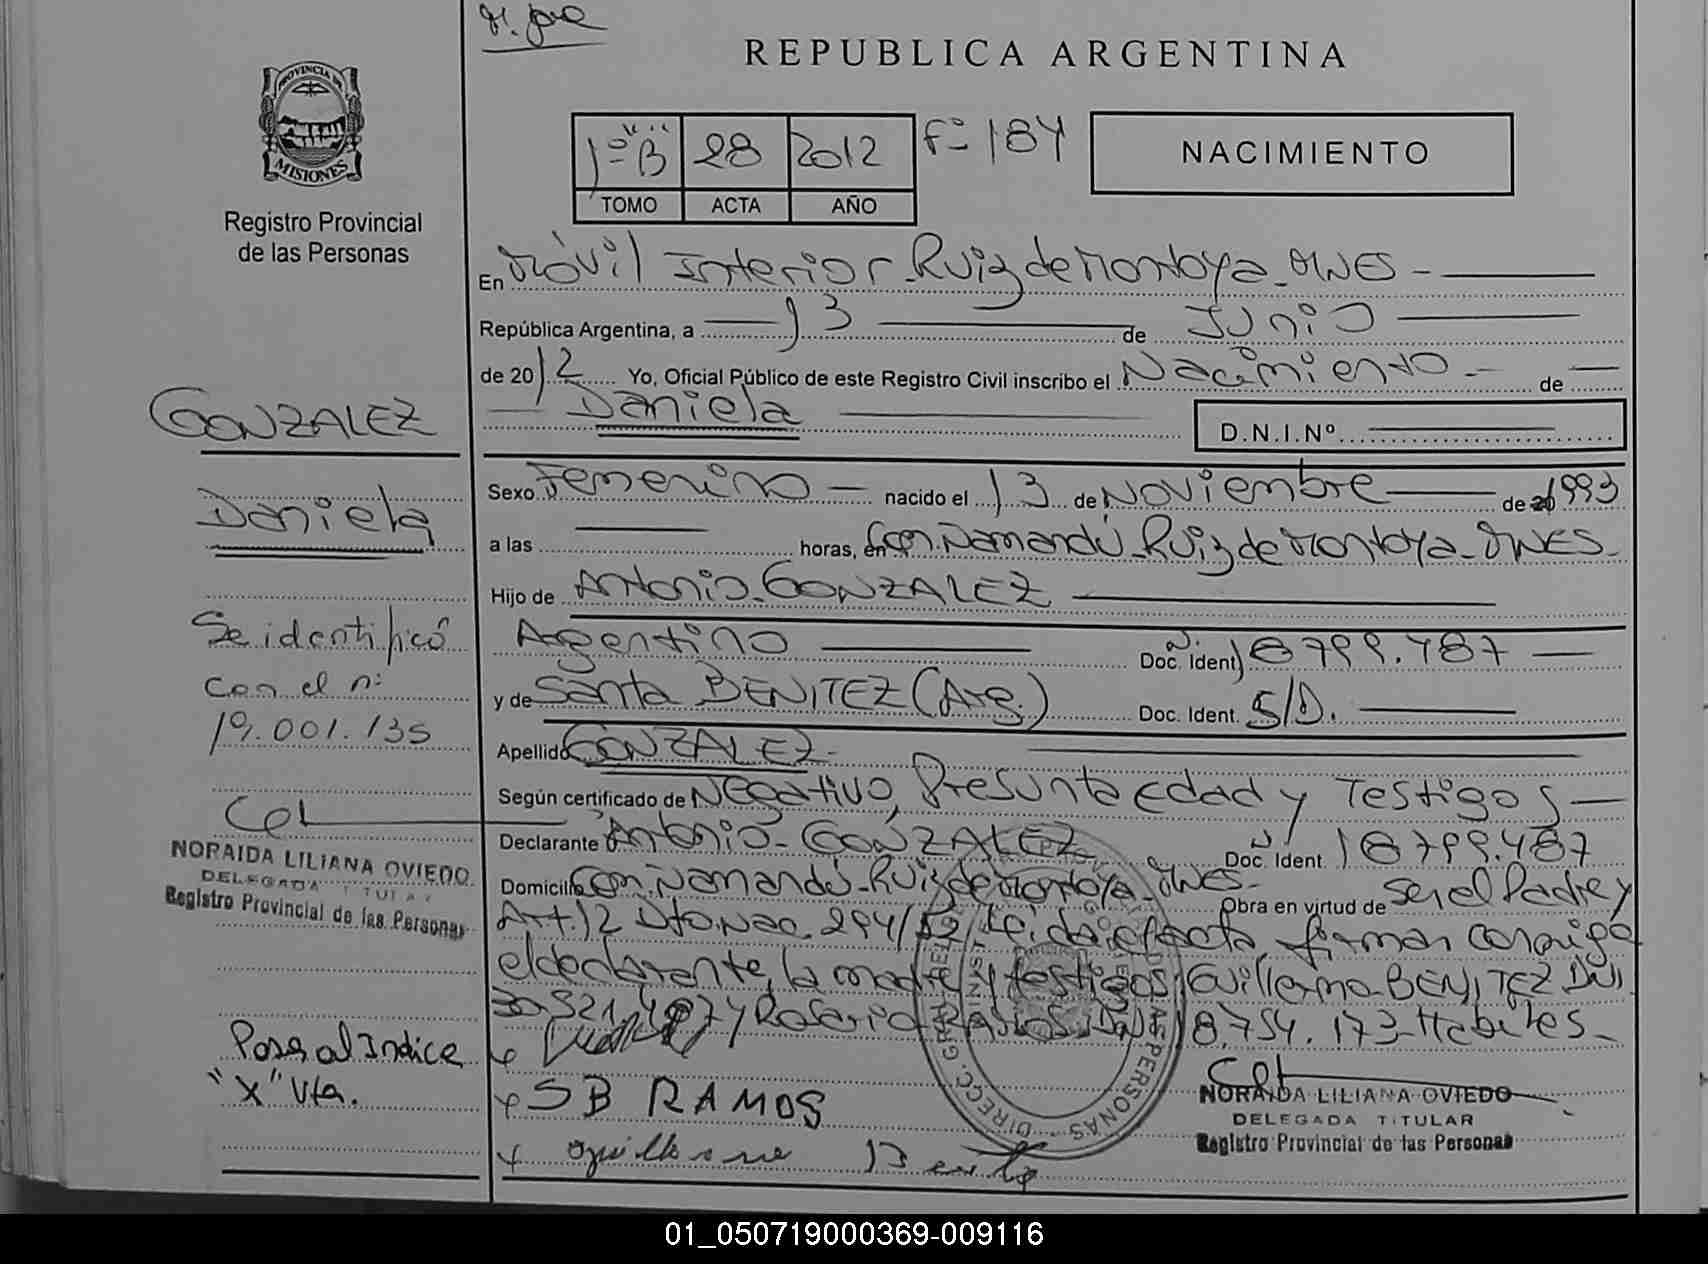 REPUBLICA ARGENTINA
PROVINCIA DE
MISIONES
Registro Provincial
de las Personas
1º "B" 28 2012 Fº 184
TOMO ACTA AÑO
NACIMIENTO
En Móvil Interior Ruiz de Montoya - MNES -
República Argentina, a 13 de Junio
de 2012 Yo, Oficial Público de este Registro Civil inscribo el Nacimiento - de
Daniela D.N.I.Nº
GONZALEZ
Daniela
Se identificó
con el nº
19.001.135
NORAIDA LILIANA OVIEDO
DELEGADA TITULAR
Registro Provincial de las Personas
Pasa al Indice
"X" Vta.
Sexo Femenino - nacido el 13 de Noviembre de 1993
a las horas, en Com. Ñamandú - Ruiz de Montoya - MNES -
Hijo de Antonio - GONZALEZ
Argentino Doc. Ident. Nº 18799.487
y de Santa BENITEZ (Arg.) Doc. Ident. S/D.
Apellido GONZALEZ -
Según certificado de Negativo, Presunta edad y Testigos
Declarante Antonio - GONZALEZ Doc. Ident. Nº 18799.487
Domicilio Com. Ñamandú - Ruiz de Montoya - MNES - Obra en virtud de ser el Padre y
Art. 12 Dto. Nac. 294/ Leída el acta, firman conmigo
el declarante, la madre y testigos Guillermo BENITEZ DNI
30.521.487 y Rosario RAMOS DNI 18.754.173 - Hábiles -
SB RAMOS
NORAIDA LILIANA OVIEDO
DELEGADA TITULAR
Registro Provincial de las Personas
01_050719000369-009116